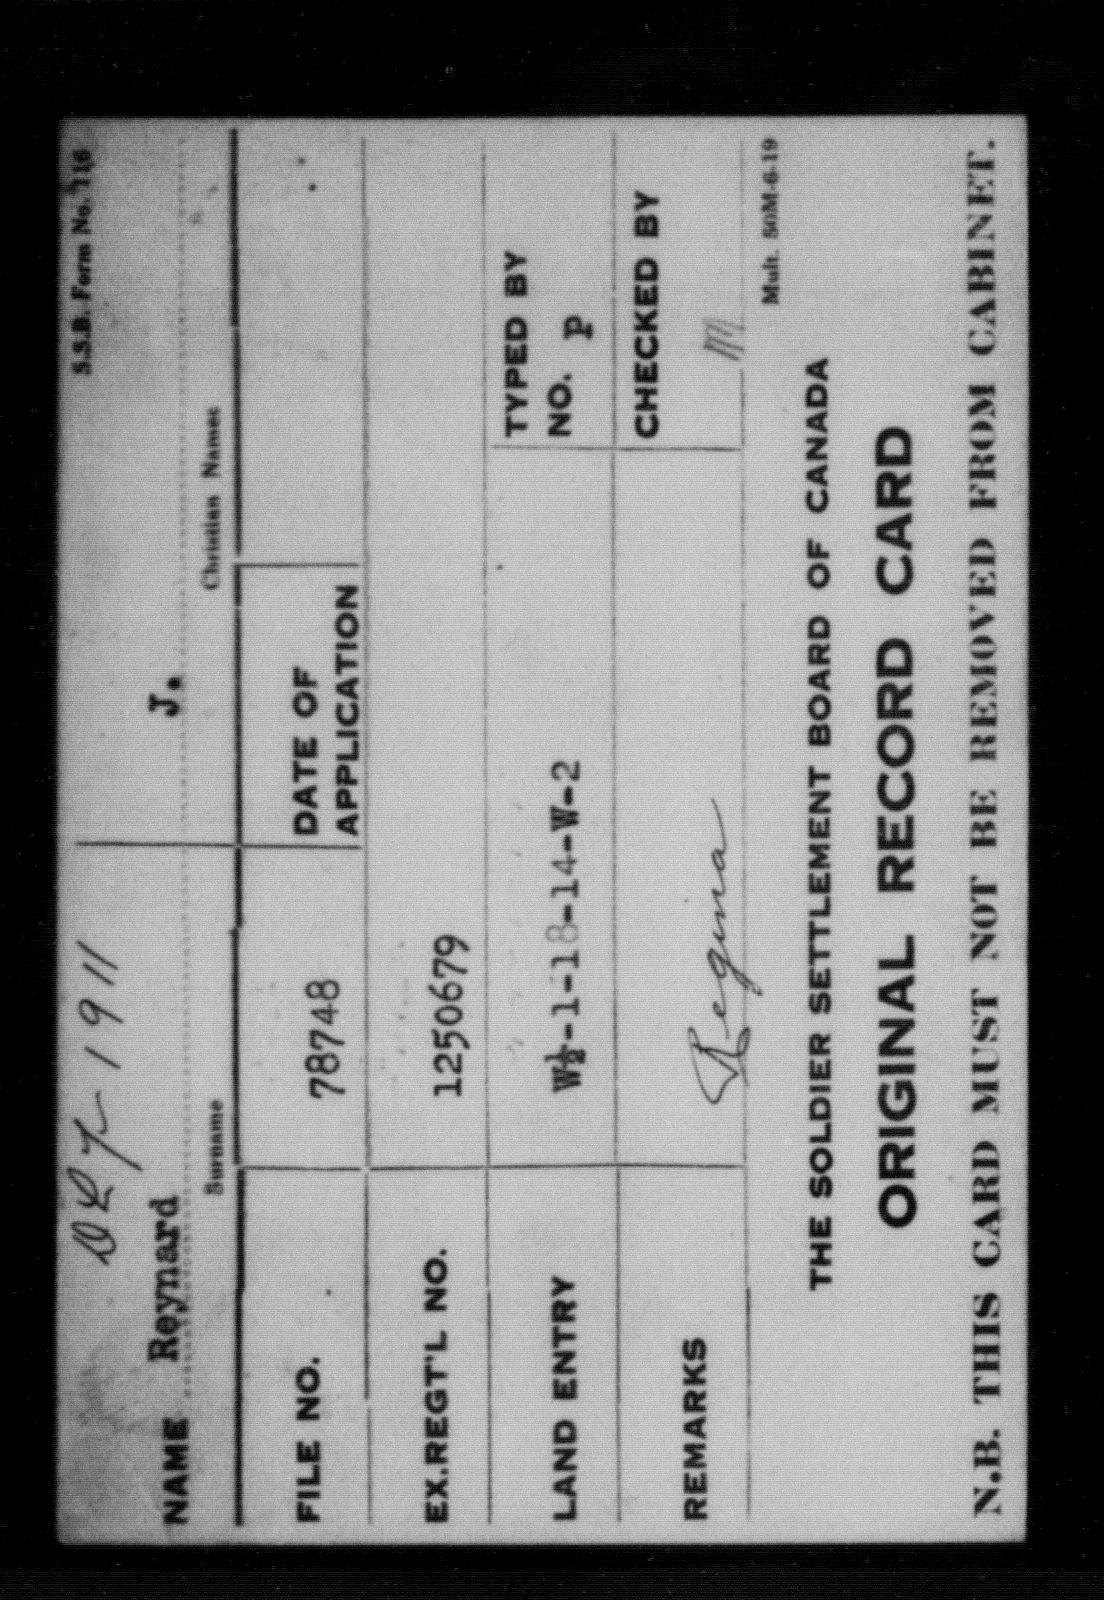 S.S.B. Form No. 116
DLf-1911
NAME Reynard J.
Surname Christian Names
FILE NO. 78748 DATE OF
APPLICATION
EX.REGT'L NO. 1250679
LAND ENTRY W½-1-18-14-W-2 TYPED BY
NO. P
REMARKS Regina CHECKED BY
M
Mult. 50M-6-19
THE SOLDIER SETTLEMENT BOARD OF CANADA
ORIGINAL RECORD CARD
N.B. THIS CARD MUST NOT BE REMOVED FROM CABINET.